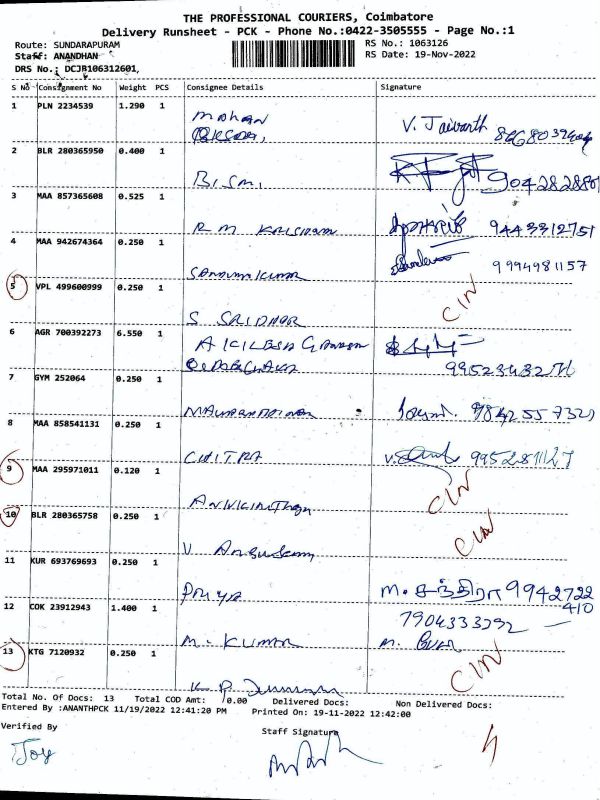 THE PROFESSIONAL COURIERS, Coimbatore
Delivery Runsheet - PCK - Phone No.:0422-3505555 - Page No.:1
Route: SUNDARAPURAM RS No.: 1063126
Staff: ANANDHAN RS Date: 19-Nov-2022
DRS No.: DCJB106312601,
S No Consignment No Weight PCS Consignee Details Signature
1 PLN 2234539 1.290 1
Mohan V. Jaivanth
2 BLR 280365950 0.400 1
BISMI 9042828801
3 MAA 857365608 0.525 1
R M 9443312751
4 MAA 942674364 0.250 1
Sandumkumar 9994981157
5 VPL 499600999 0.250 1
S SRIDHAR CIN
6 AGR 700392273 6.550 1
AKILESH
7 GYM 252064 0.250 1
8 MAA 858541131 0.250 1
CHITRA 9952811127
9 MAA 295971011 0.120 1
CIN
10 BLR 280365758 0.250 1
V CIN
11 KUR 693769693 0.250 1
PRIYA M. சந்திரா 9942722
410
12 COK 23912943 1.400 1
7904333292
M. KUMAR
13 KTG 7120932 0.250 1
K P CIN
Total No. Of Docs: 13 Total COD Amt: 0.00 Delivered Docs: Non Delivered Docs:
Entered By :ANANTHPCK 11/19/2022 12:41:20 PM Printed On: 19-11-2022 12:42:00
Verified By Staff Signature
Joy